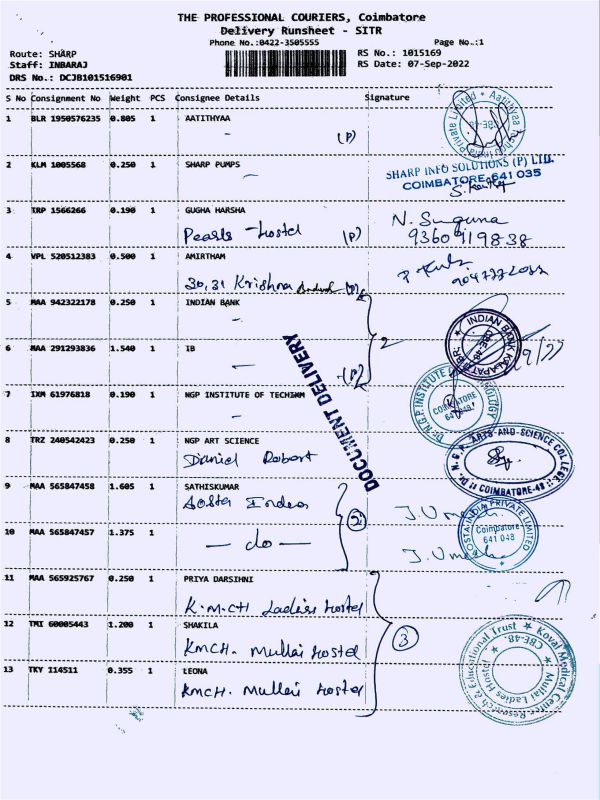 THE PROFESSIONAL COURIERS, Coimbatore
Delivery Runsheet - SITR
Phone No.:0422-3505555 Page No.:1
Route: SHARP RS No.: 1015169
Staff: INBARAJ RS Date: 07-Sep-2022
DRS No.: DCJB101516901
S No Consignment No Weight PCS Consignee Details Signature
1 BLR 1950576235 0.805 1 AATITHYAA
(P)
2 KLM 1005568 0.250 1 SHARP PUMPS
SHARP INFO SOLUTIONS (P) LTD.
COIMBATORE-641 035
3 TRP 1566266 0.190 1 GUGHA HARSHA
Pearls - hostel (P)
N. Suguna
9360919838
4 VPL 520512383 0.500 1 AMIRTHAM
30,31 Krishna
5 MAA 942322178 0.250 1 INDIAN BANK
2
INDIAN BANK KALAPATTI BR.
CBE-48
6 MAA 291293836 1.540 1 IB
(P)
DOCUMENT DELIVERY
7 IXM 61976818 0.190 1 NGP INSTITUTE OF TECHNM
Dr. N.G.P. INSTITUTE OF TECHNOLOGY
COIMBATORE
8 TRZ 240542423 0.250 1 NGP ART SCIENCE
Daniel Robert
Dr. N.G.P. ARTS AND SCIENCE COLLEGE
COIMBATORE-48
9 MAA 565847458 1.605 1 SATHISKUMAR
Aosta India
2
10 MAA 565847457 1.375 1
- do -
AOSTA INDIA PRIVATE LIMITED
Coimbatore
641 048
11 MAA 565925767 0.250 1 PRIYA DARSIHNI
K.M.CH Ladies Hostel
12 TMI 60005443 1.200 1 SHAKILA
KMCH. Mullai Hostel
3
13 TKY 114511 0.355 1 LEONA
KMCH. Mullai Hostel
Kovai Medical Center Research & Educational Trust
Mullai Ladies Hostel
CBE-48.